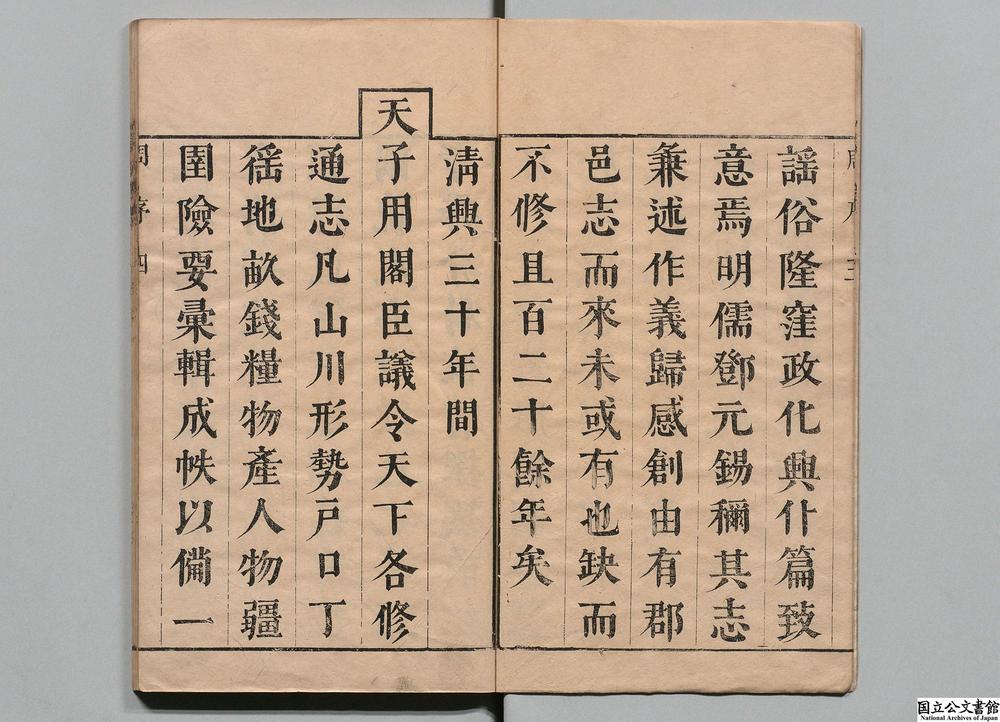 謡俗隆窪政化興仆篇致
意焉明儒鄧元錫稱其志
兼述作義歸感創由有郡
邑志而來未或有也缺而
不修且百二十餘年矣
清興三十年間
天子用閣臣議令天下各修
通志凡山川形勢戸口丁
徭地畝錢糧物產人物疆
圉險要彙輯成帙以備一
序四
国立公文書館
National Archives of Japan